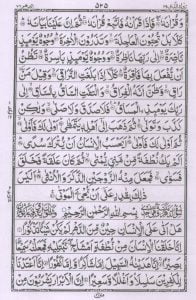 ۵۲۵
وَقُرْاٰنَهٗ فَاِذَا قَرَاْنٰهُ فَاتَّبِعْ قُرْاٰنَهٗ ثُمَّ اِنَّ عَلَيْنَا بَيَانَهٗ
كَلَّا بَلْ تُحِبُّوْنَ الْعَاجِلَةَ وَتَذَرُوْنَ الْاٰخِرَةَ وُجُوْهٌ يَّوْمَئِذٍ
نَّاضِرَةٌ اِلٰى رَبِّهَا نَاظِرَةٌ وَوُجُوْهٌ يَّوْمَئِذٍ بَاسِرَةٌ تَظُنُّ
اَنْ يُّفْعَلَ بِهَا فَاقِرَةٌ كَلَّا اِذَا بَلَغَتِ التَّرَاقِيَ وَقِيْلَ مَنْ
رَاقٍ وَّظَنَّ اَنَّهُ الْفِرَاقُ وَالْتَفَّتِ السَّاقُ بِالسَّاقِ اِلٰى
رَبِّكَ يَوْمَئِذِ الْمَسَاقُ فَلَا صَدَّقَ وَلَا صَلّٰى وَلٰكِنْ
كَذَّبَ وَتَوَلّٰى ثُمَّ ذَهَبَ اِلٰى اَهْلِهٖ يَتَمَطّٰى اَوْلٰى لَكَ فَاَوْلٰى
ثُمَّ اَوْلٰى لَكَ فَاَوْلٰى اَيَحْسَبُ الْاِنْسَانُ اَنْ يُّتْرَكَ سُدًى
اَلَمْ يَكُ نُطْفَةً مِّنْ مَّنِيٍّ يُّمْنٰى ثُمَّ كَانَ عَلَقَةً فَخَلَقَ
فَسَوّٰى فَجَعَلَ مِنْهُ الزَّوْجَيْنِ الذَّكَرَ وَالْاُنْثٰى اَلَيْسَ
ذٰلِكَ بِقٰدِرٍ عَلٰى اَنْ يُّحْيِيَ الْمَوْتٰى
بِسْمِ اللهِ الرَّحْمٰنِ الرَّحِيْمِ
هَلْ اَتٰى عَلَى الْاِنْسَانِ حِيْنٌ مِّنَ الدَّهْرِ لَمْ يَكُنْ شَيْئًا مَّذْكُوْرًا
اِنَّا خَلَقْنَا الْاِنْسَانَ مِنْ نُّطْفَةٍ اَمْشَاجٍ نَّبْتَلِيْهِ فَجَعَلْنٰهُ سَمِيْعًا
بَصِيْرًا اِنَّا هَدَيْنٰهُ السَّبِيْلَ اِمَّا شَاكِرًا وَّاِمَّا كَفُوْرًا اِنَّا اَعْتَدْنَا
لِلْكٰفِرِيْنَ سَلٰسِلَا وَاَغْلٰلًا وَّسَعِيْرًا اِنَّ الْاَبْرَارَ يَشْرَبُوْنَ مِنْ